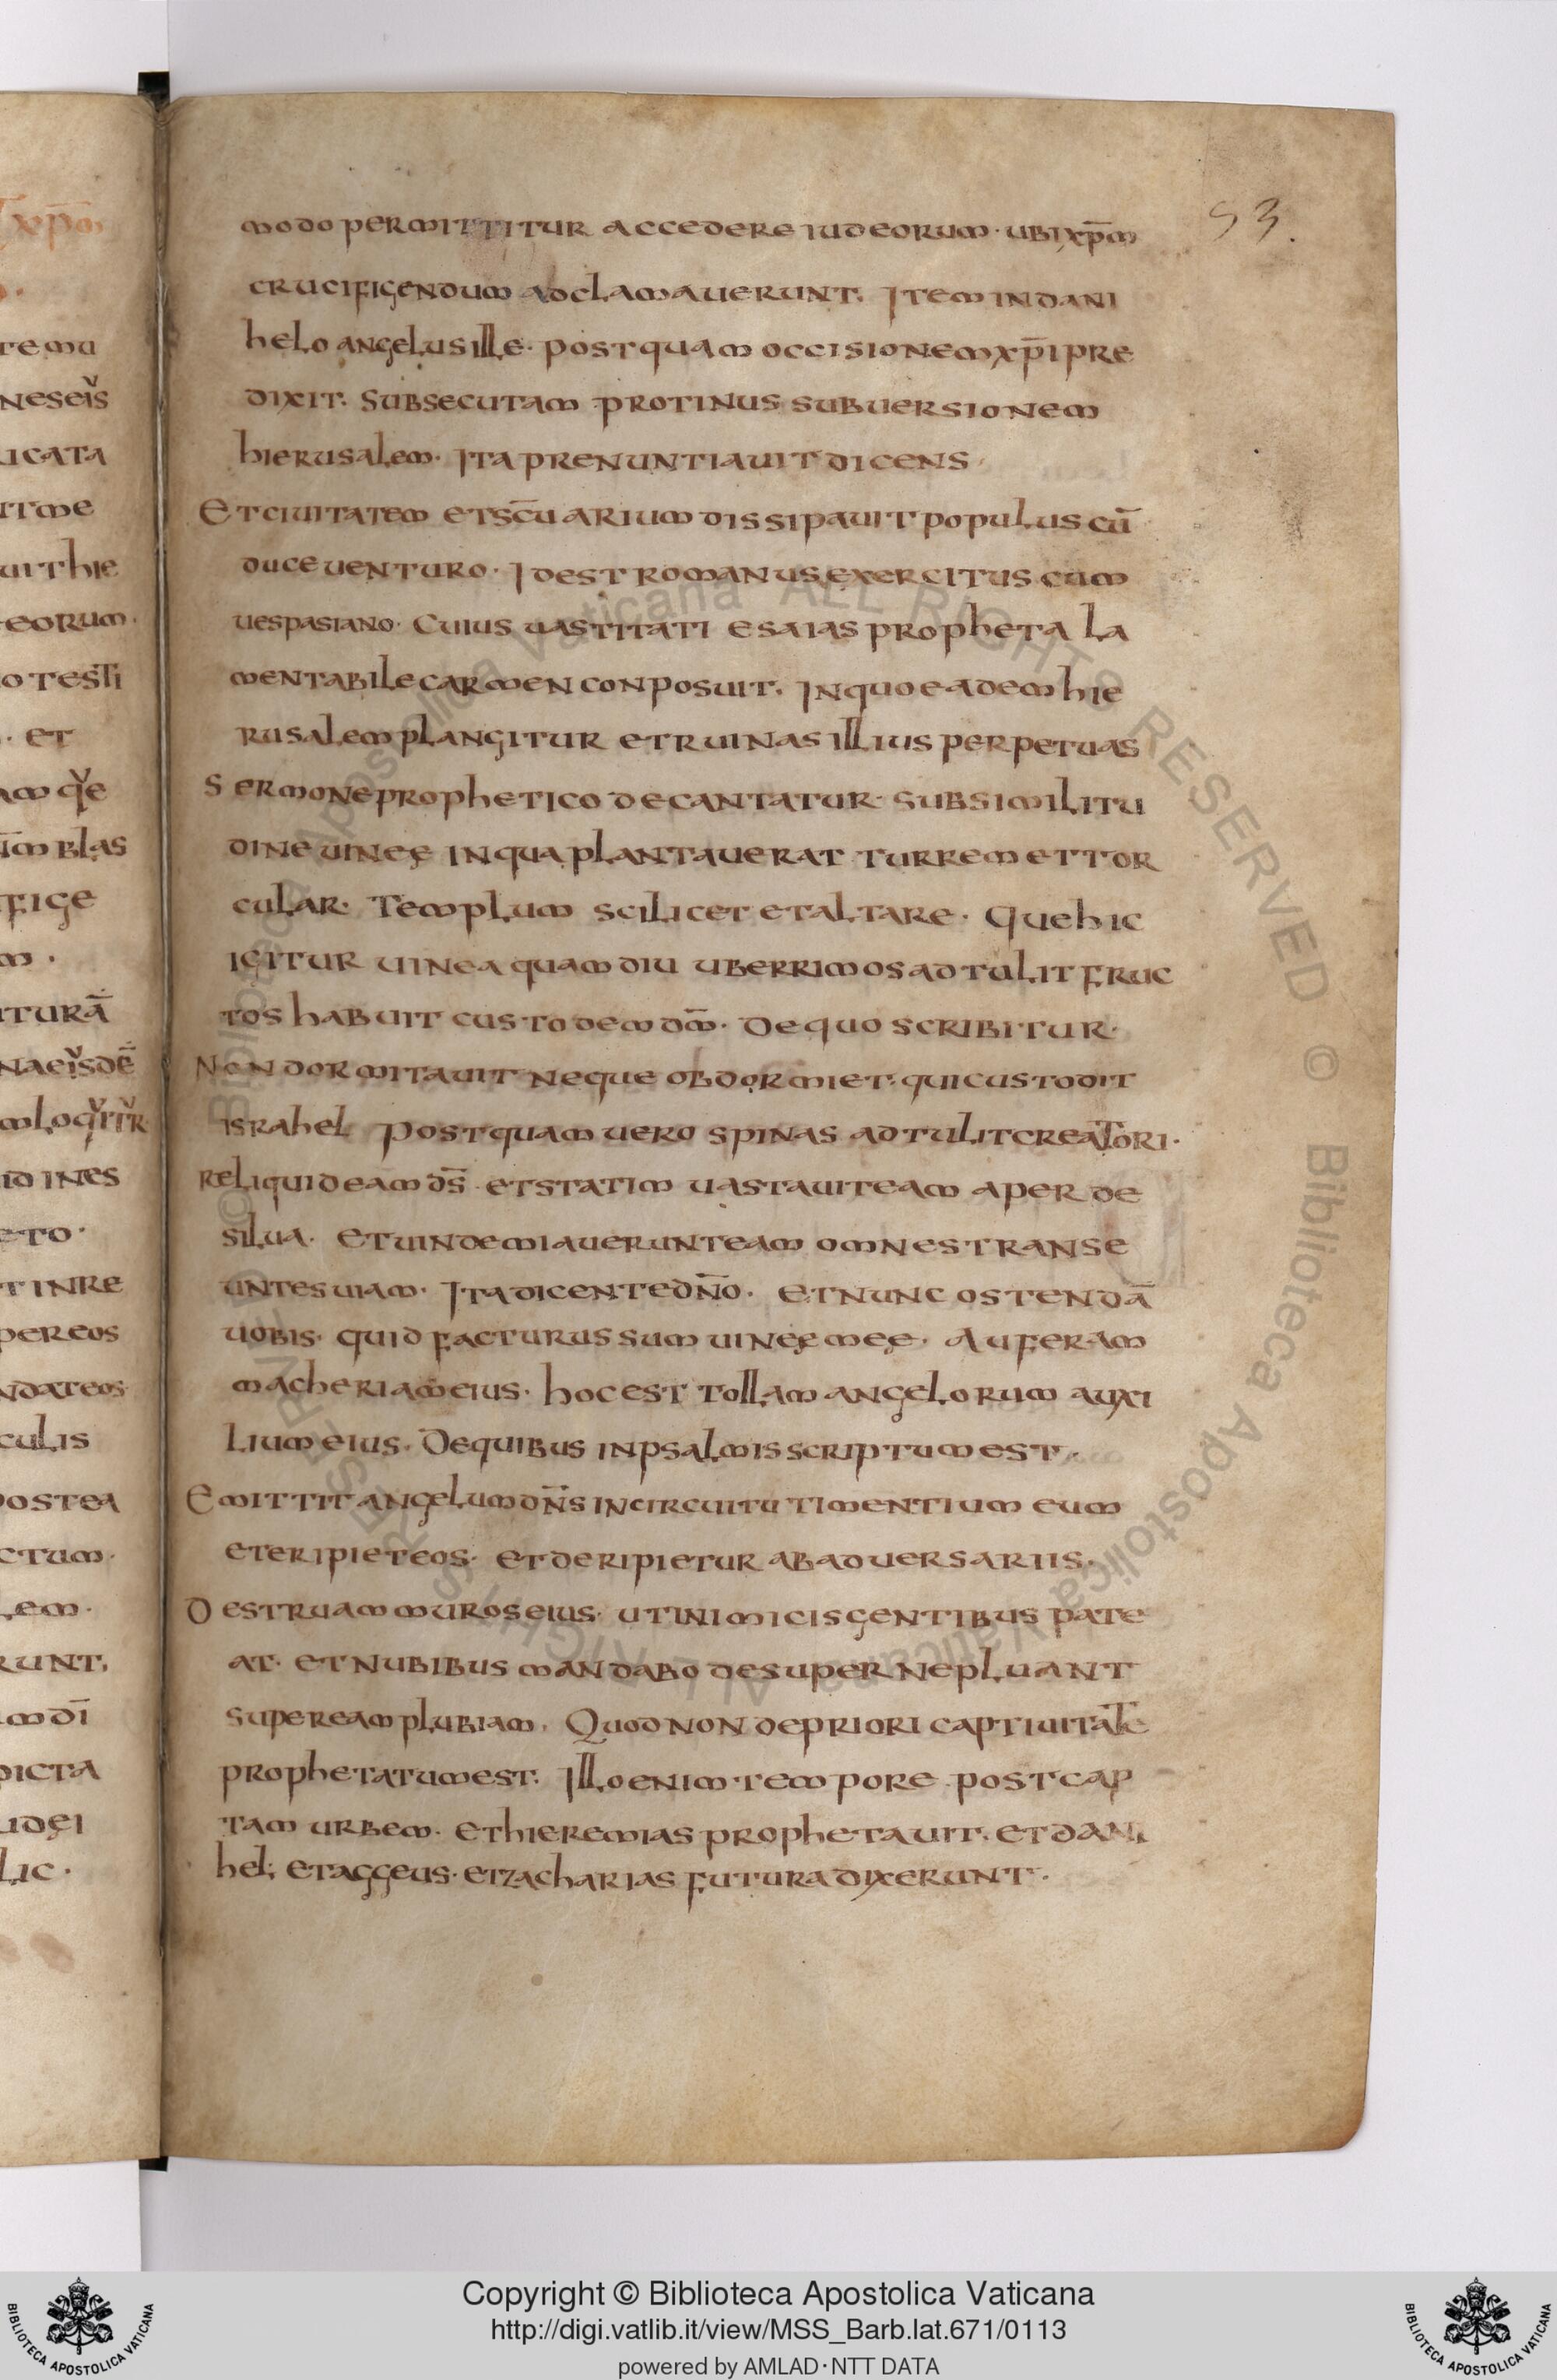 53.
modo permittitur accedere iudeorum· ubi xp̄m
crucifigendum adclamauerunt. Item in dani
helo angelus ille· postquam occisionem xp̄i pre
dixit. subsecutam protinus subuersionem
hierusalem· Ita prenuntiauit dicens
Et ciuitatem et sc̄uarium dissipauit populus cū
duce uenturo· Idest romanus exercitus cum
uespasiano· Cuius uastitati esaias propheta la
mentabile carmen conposuit. In quo eadem hie
rusalem plangitur et ruinas illius perpetuas
Sermone prophetico decantatur· sub similitu
dine uineę in qua plantauerat turrem et tor
cular· Templum scilicet et altare· Que hic
igitur uinea quamdiu uberrimos adtulit fruc
tos habuit custodem dm̄· De quo scribitur·
Non dormitauit neque obdormiet· qui custodit
israhel Postquam uero spinas adtulit creatori·
Reliquid eam ds̄· et statim uastauit eam aper de
silua· et uindemiauerunt eam omnes transe
untes uiam· Ita dicente dn̄o· et nunc ostendā
uobis· quid facturus sum uineę meę· Auferam
macheriam eius· hoc est tollam angelorum auxi
lium eius· De quibus in psalmis scriptum est·
Emittit angelum dn̄s in circuitu timentium eum
et eripiet eos· et deripietur ab aduersariis·
Destruam muros eius· ut inimicis gentibus pate
at· et nubibus mandabo desuper ne pluant
super eam plubiam· Quod non de priori captiuitate
prophetatum est. Illo enim tempore post cap
tam urbem· et hieremias prophetauit· et dani
hel; et aggeus· et zacharias futura dixerunt·
Copyright © Biblioteca Apostolica Vaticana
http://digi.vatlib.it/view/MSS_Barb.lat.671/0113
powered by AMLAD·NTT DATA